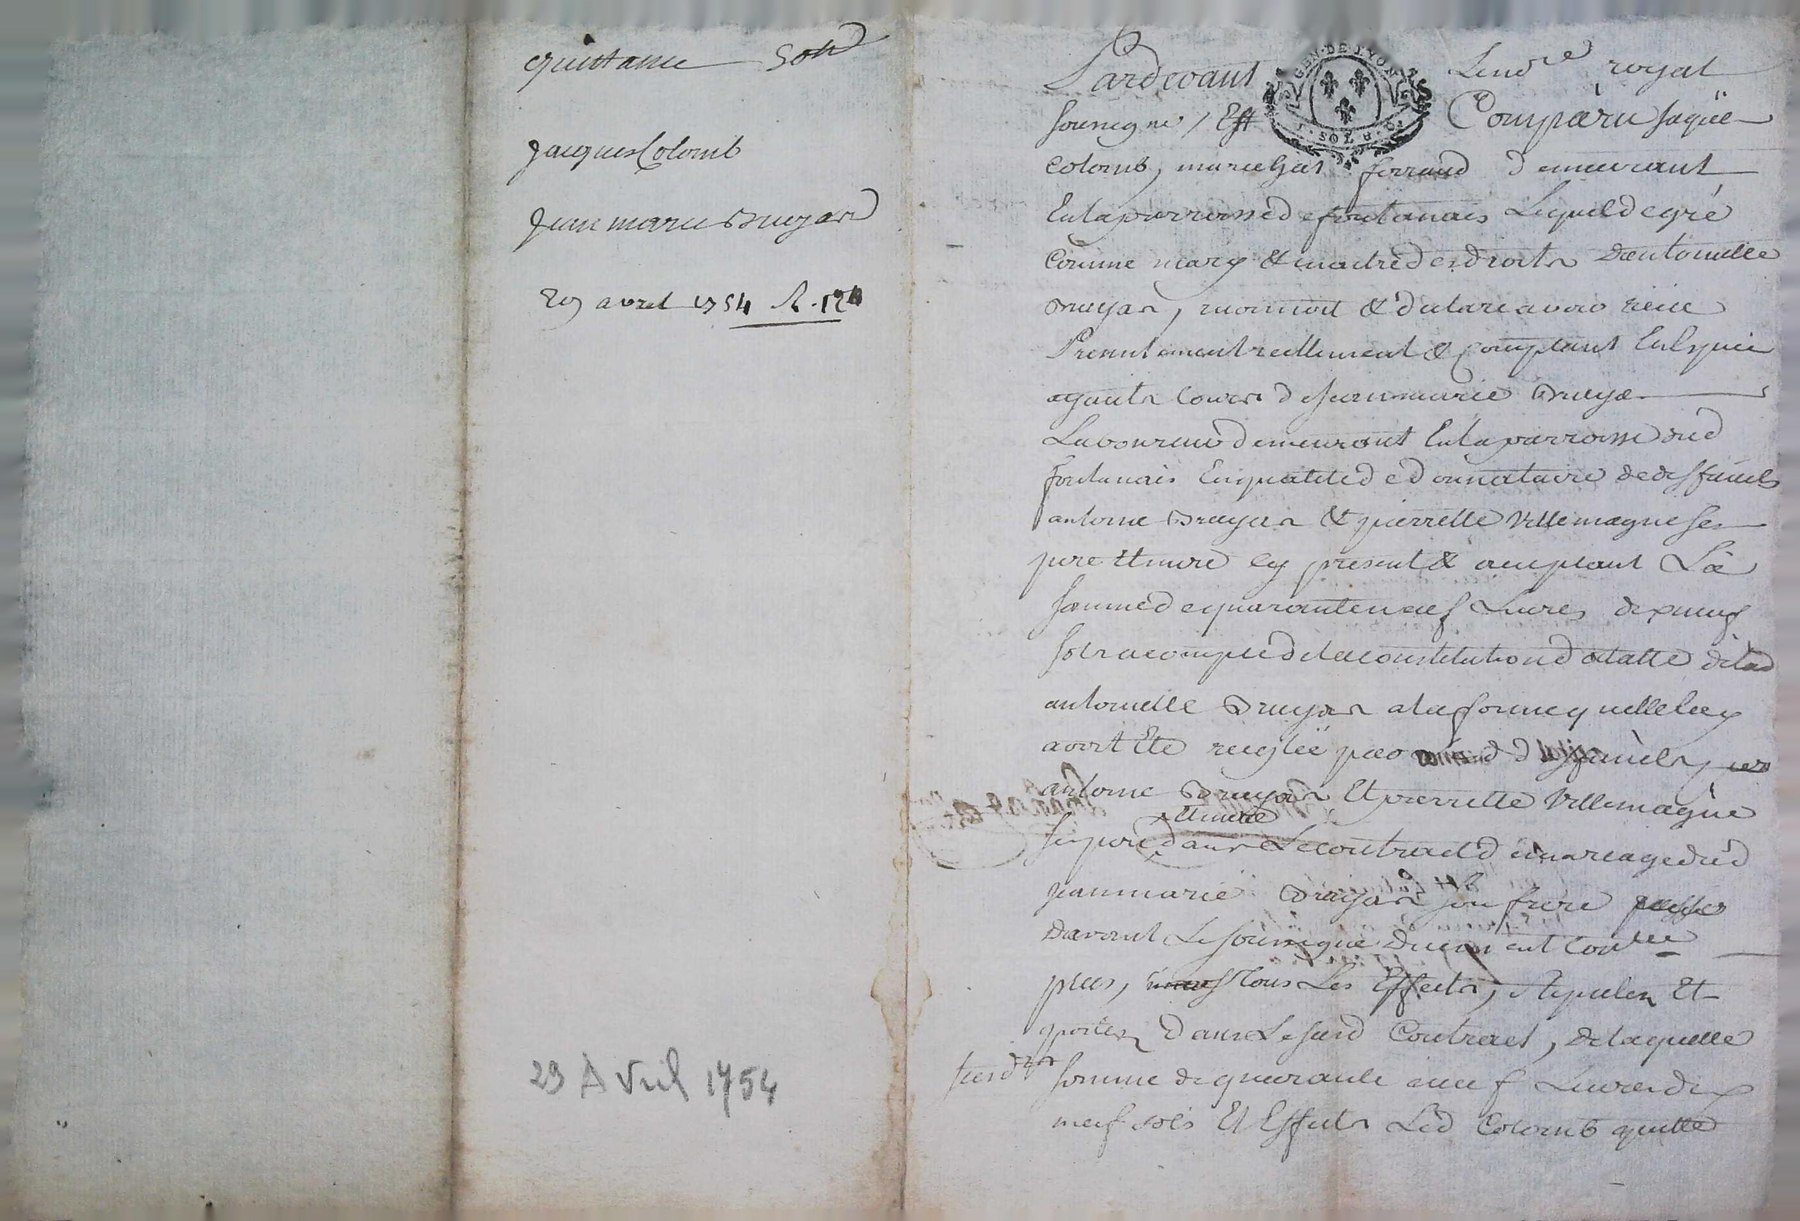 quittance 50#
Jacques Colomb
Jean marie Bruyas
29 avril 1754 R. 12s
23 Avril 1754
Pardevant Le no.re royal
GEN. DE LYON
SOL
soussigné, Est Comparu Jaque
Colomb, marechal ferrand demeurant
En la parroisse de fontanais Lequel de gré
Comme mary & maitre des droits d'antoinette
Bruyas, reconnoit & declare avoir reçu
Presentement reellement & comptant En Espece
ayants Cours de Jean marie Bruyas
Laboureur demeurant En la parroisse dud
fontanais En qualité de donnataire de deffunts
antoine Bruyas & pierrette Villemagne ses
pere et mere cy present & acceptant La
somme de quarante neuf Livres dix neuf
sols a compte de la constitution dotalle de lad
antoinette Bruyas a la somme quelle luy
avoit Eté reglée par lesd deffuncts
antoine Bruyas Et pierrette Villemagne
et mere
ses pere dans Le contract de mariage dud
jean marie Bruyas son frere passé
Davant Le soussigné Duement Con.lee
plus, tous Les Effects, stipulez Et
portez dans Le susd Contract, de laquelle
susd.e somme de quarante neuf Livres dix
neuf sols Et Effets Led Colomb quitte